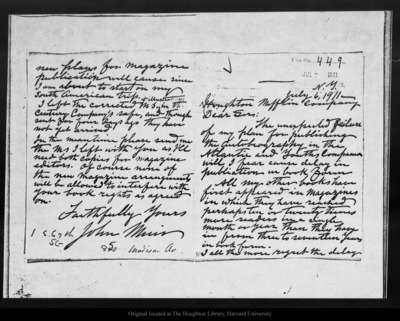 File No. 449
JUL 7 1911
N.Y.
July 6, 1911
Houghton Mifflin Company
Dear Sirs:
The unexpected failure
of my plan for publishing
the autobiography in the
Atlantic and Youths Companion
will I fear cause delay in
publication in book form
All my other books have
first appeared in magazines
in which they have reached
perhaps ten or twenty times
more readers in a single
month or year than they have
in from three to seventeen years
in book form.
I all the more regret the delay
new plans for magazine
publication will cause since
I am about to start on my
South American trip.
I left the corrected Ms in the
Century Company's safe, and though
sent for four days ago they have
not yet arrived
In the meantime please send me
the Ms I left with you as I'll
need both copies for magazine
editors. Of course none of
the new magazine arrangements
will be allowed to interfere with
your book rights as agreed
on.
Faithfully Yours
John Muir
1 E. 69th St
Madison Av.
Original located at The Houghton Library, Harvard University